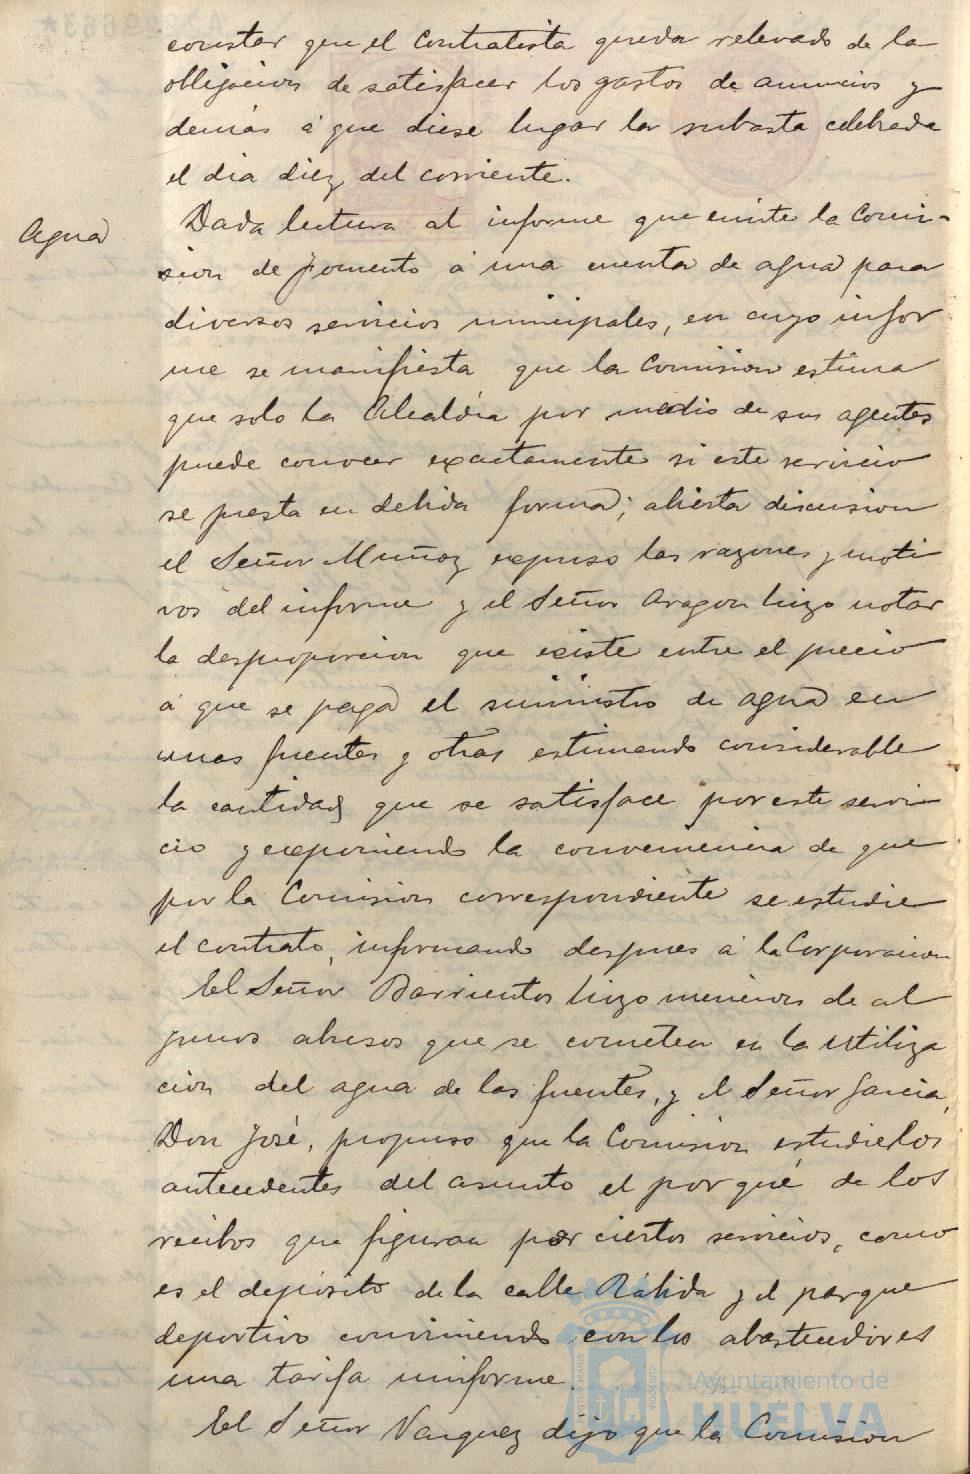 constar que el Contratista queda relevado de la
obligacion de satisfacer los gastos de anuncios y
demás á que diese lugar la subasta celebrada
el dia diez del corriente.
Agua
Dada lectura al informe que emite la Comi-
sion de Fomento á una cuenta de agua para
diversos servicios municipales, en cuyo infor
me se manifiesta que la Comision estima
que solo la Alcaldia por medio de sus agentes
puede conocer exactamente si este servicio
se presta en debida forma; abierta discusion
el Señor Muñoz expuso las razones y moti
vos del informe y el Señor Aragon hizo notar
la desproporcion que existe entre el precio
á que se paga el suministro de agua en
unas fuentes y otras estimando considerable
la cantidad que se satisface por este servi
cio y exponiendo la conveniencia de que
por la Comision correspondiente se estudie
el contrato, informando despues á la Corporacion
El Señor Barrientos hizo mencion de al
gunos abusos que se cometen en la utiliza
cion del agua de las fuentes, y el Señor Garcia,
Don José, propuso que la Comision estudie los
antecedentes del asunto el por qué de los
recibos que figuran por ciertos servicios, como
es el deposito de la calle Rábida y el parque
deportivo conviniendo con los abastecedores
una tarifa uniforme.
El Señor Vazquez dijo que la Comision
Ayuntamiento de
HUELVA